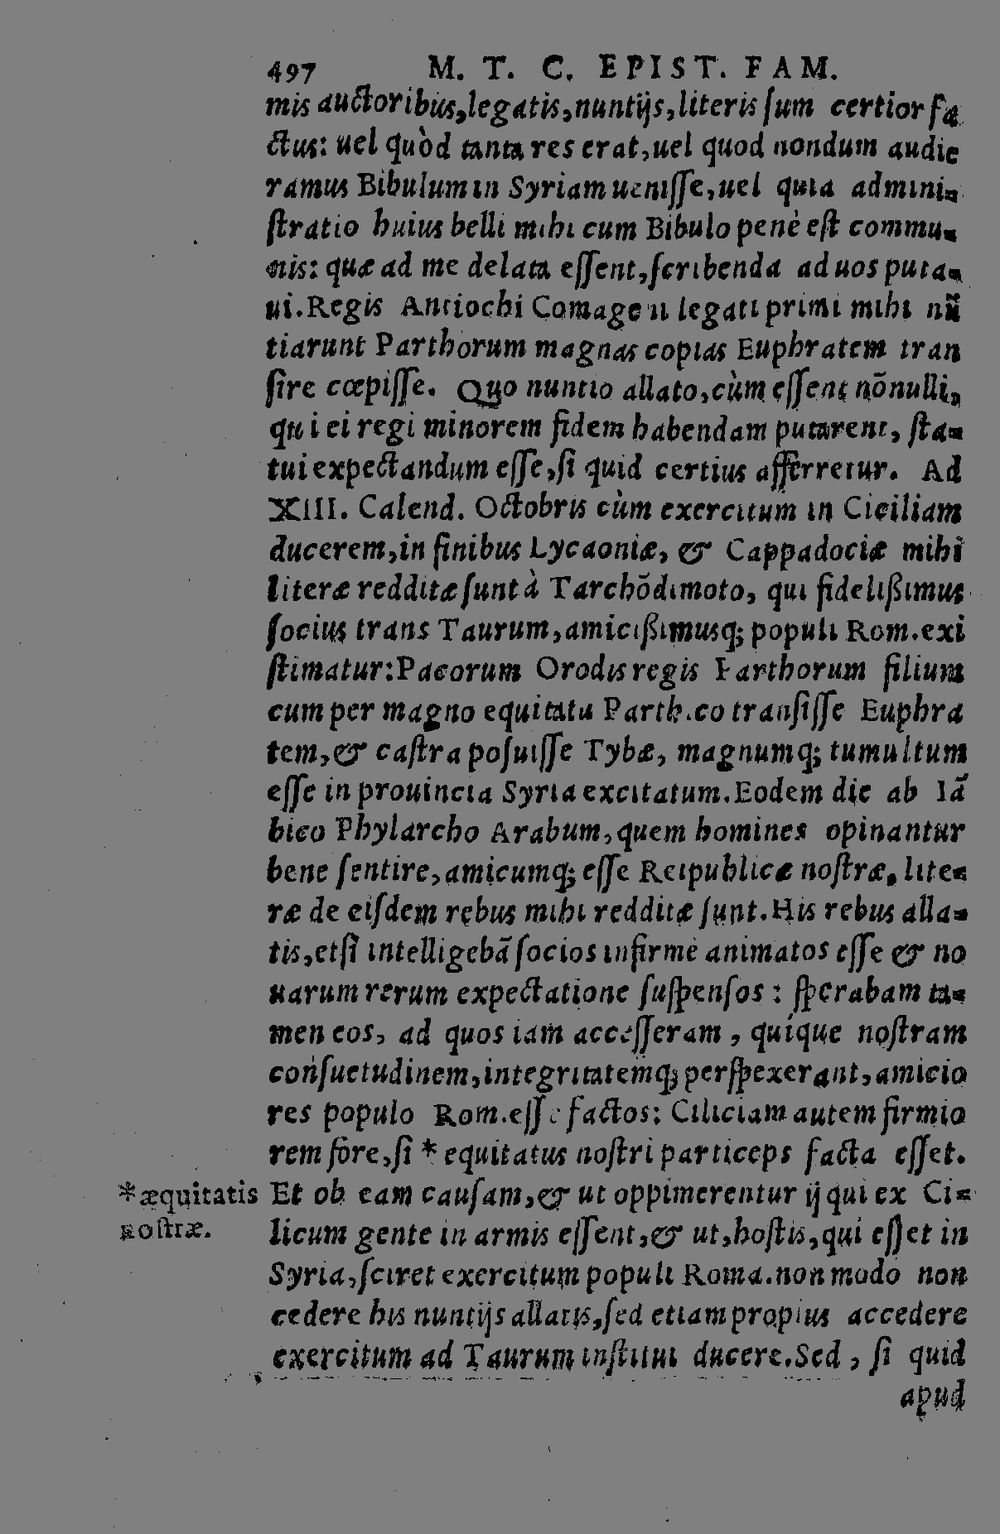 497 M. T. C. EPIST. FAM.
mis auctoribus,legatis,nuntijs,literis ſum certior fa
ctus: uel quòd tanta res erat,uel quod nondum audie
ramus Bibulum in Syriam ueniſſe,uel quia admini-
ſtratio huius belli mihi cum Bibulo penè eſt commu-
nis: quæ ad me delata eſſent,ſcribenda ad uos puta-
ui. Regis Antiochi Comageni legati primi mihi nũ
tiarunt Parthorum magnas copias Euphratem tran
ſire cœpiſſe. Quo nuntio allato,cùm eſſent nõnulli,
qui ei regi minorem fidem habendam putarent, ſta-
tui expectandum eſſe,ſi quid certius afferretur. Ad
XIII. Calend. Octobris cùm exercitum in Ciciliam
ducerem,in finibus Lycaoniæ, & Cappadociæ mihi
literæ redditæ ſunt à Tarchõdimoto, qui fideliſsimus
ſocius trans Taurum,amiciſsimusq; populi Rom.exi
ſtimatur:Pacorum Orodis regis Parthorum filium
cum per magno equitatu Parthico tranſiſſe Euphra
tem,& caſtra poſuiſſe Tybæ, magnumq; tumultum
eſſe in prouincia Syria excitatum.Eodem die ab Iã
blico Phylarcho Arabum,quem homines opinantur
bene ſentire,amicumq; eſſe Reipublicæ noſtræ, lite-
ræ de eiſdem rebus mihi redditæ ſunt.His rebus alla-
tis,etſi intelligebã ſocios infirmè animatos eſſe & no
uarum rerum expectatione ſuſpenſos : ſperabam ta-
men eos, ad quos iam acceſſeram , quíque noſtram
conſuetudinem,integritatemq; perſpexerant,amicio
res populo Rom.eſſe factos: Ciliciam autem firmio
rem fore,ſi * equitatus noſtri particeps facta eſſet.
*æquitatis noſtræ.
Et ob eam cauſam,& ut oppimerentur ij qui ex Ci-
licum gente in armis eſſent,& ut,hoſtis,qui eſſet in
Syria,ſciret exercitum populi Roma.non modo non
cedere his nuntijs allatis,ſed etiam propius accedere
exercitum ad Taurum inſtitui ducere.Sed , ſi quid
apud